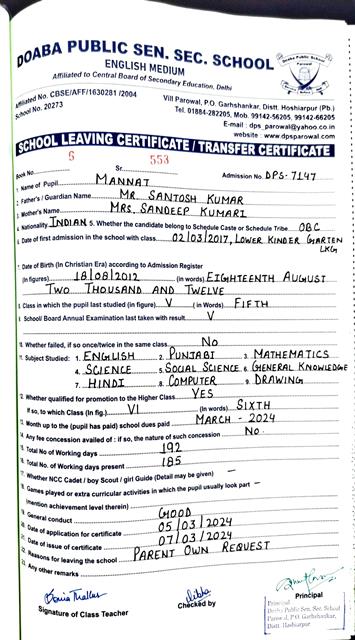 DOABA PUBLIC SEN. SEC. SCHOOL
ENGLISH MEDIUM
Affiliated to Central Board of Secondary Education, Delhi
Affiliated No. CBSE/AFF/1630281 /2004
School No. 20273
Vill Parowal, P.O. Garhshankar, Distt. Hoshiarpur (Pb.)
Tel.01884-282205, Mob. 99142-56205, 99142-66205
E-mail : dps_parowal@yahoo.co.in
website : www.dpsparowal.com
SCHOOL LEAVING CERTIFICATE / TRANSFER CERTIFICATE
Book No. 6 Sr. 553 Admission No. DPS-7147
1. Name of Pupil MANNAT
2. Father's / Guardian Name MR. SANTOSH KUMAR
3. Mother's Name MRS. SANDEEP KUMARI
4. Nationality INDIAN 5. Whether the candidate belong to Schedule Caste or Schedule Tribe OBC
6. Date of first admission in the school with class. 02/03/2017, LOWER KINDER GARTEN
LKG
7. Date of Birth (In Christian Era) according to Admission Register
(In figures) 18/08/2012 (in words) EIGHTEENTH AUGUST
TWO THOUSAND AND TWELVE
8. Class in which the pupil last studied (in figure) V (in Words) FIFTH
9. School Board Annual Examination last taken with result V
10. Whether failed, if so once/twice in the same class No
11. Subject Studied : 1. ENGLISH 2. PUNJABI 3. MATHEMATICS
4. SCIENCE 5. SOCIAL SCIENCE 6. GENERAL KNOWLEDGE
7. HINDI 8. COMPUTER 9. DRAWING
12. Whether qualified for promotion to the Higher Class YES
If so, to which Class (In fig.) VI (In words) SIXTH
13. Month up to the (pupil has paid) school dues paid MARCH - 2024
14. Any fee concession availed of : if so, the nature of such concession No
15. Total No. of Working days 192
16. Total No. of Working days present 185
17. Whether NCC Cadet / boy Scout / girl Guide (Detail may be given) –
18. Games played or extra curricular activities in which the pupil usually look part –
(mention achievement level therein)
19. General conduct GOOD
20. Date of application for certificate 05/03/2024
21. Date of issue of certificate 07/03/2024
22. Reasons for leaving the school PARENT OWN REQUEST
23. Any other remarks
Signature of Class Teacher
Checked by
Principal
Principal
Doaba Public Sen. Sec. School
Parowal, P.O. Garhshankar,
Distt. Hoshiarpur